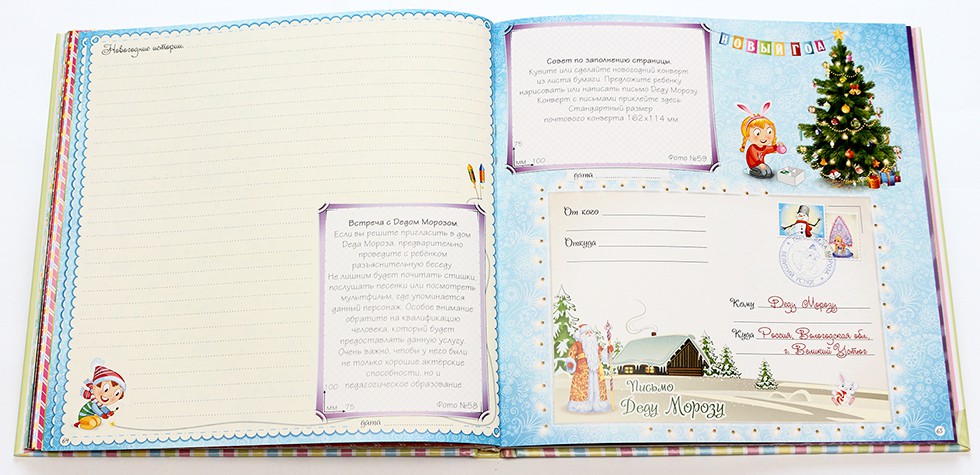 Новогодние истории.
Встреча с Дедом Морозом.
Если вы решите пригласить в дом
Деда Мороза, предварительно
проведите с ребёнком
разъяснительную беседу.
Не лишним будет почитать стишки,
послушать песенки или посмотреть
мультфильм, где упоминается
данный персонаж. Особое внимание
обратите на квалификацию
человека, который будет
предоставлять данную услугу.
Очень важно, чтобы у него были
не только хорошие актёрские
способности, но и
педагогическое образование.
100
мм 75
Фото №58
дата
64
Совет по заполнению страницы.
Купите или сделайте новогодний конверт
из листа бумаги. Предложите ребёнку
нарисовать или написать письмо Деду Морозу.
Конверт с письмами приклейте здесь.
Стандартный размер
почтового конверта 162х114 мм
75
мм 100
Фото №59
дата
НОВЫЙ ГОД
От кого
Откуда
Кому Деду Морозу
Куда Россия, Вологодская обл.,
г. Великий Устюг
Письмо
Деду Морозу
65